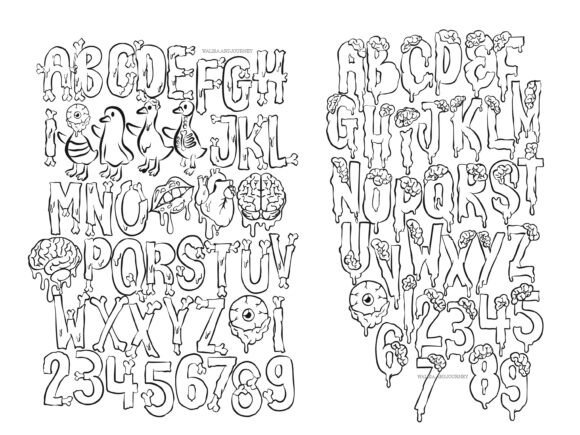 ABCDEFGH
I JKL
MNO
PQRSTUV
WXXYZ 1
23456789
ABCDEF
GHIJKLM
NOPQRST
UVWXYZ
12345
6789